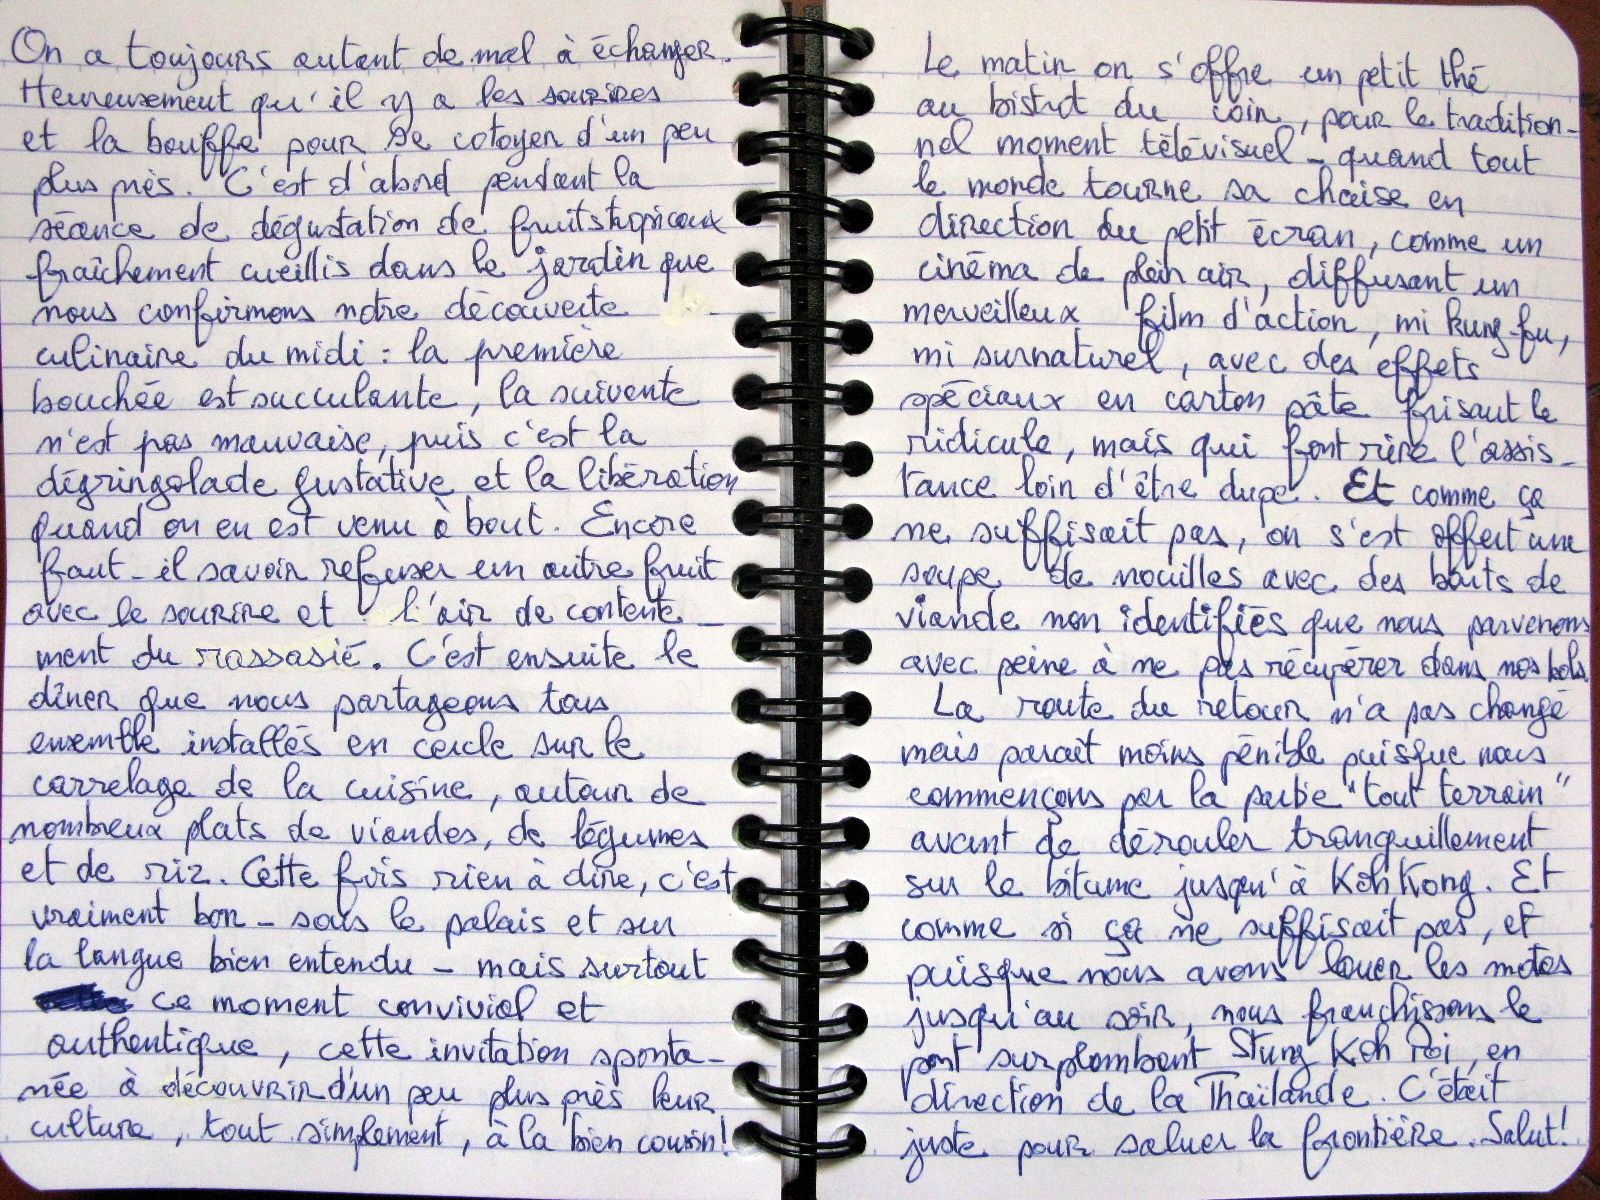 On a toujours autant de mal à échanger.
Heureusement qu'il y a les sourires
et la bouffe pour se cotoyer d'un peu
plus près. C'est d'abord pendant la
séance de dégustation de fruits tropicaux
fraîchement cueillis dans le jardin que
nous confirmons notre découverte
culinaire du midi : la première
bouchée est succulante, la suivante
n'est pas mauvaise, puis c'est la
dégringolade gustative et la libération
quand on en est venu à bout. Encore
faut-il savoir refuser un autre fruit
avec le sourire et l'air de contente-
ment du rassasié. C'est ensuite le
dîner que nous partageons tous
ensemble installés en cercle sur le
carrelage de la cuisine, autour de
nombreux plats de viandes, de légumes
et de riz. Cette fois rien à dire, c'est
vraiment bon - sous le palais et sur
la langue bien entendu - mais surtout
ce moment convivial et
authentique, cette invitation sponta-
née à découvrir d'un peu plus près leur
culture, tout simplement, à la bien cousin!
Le matin on s'offre un petit thé
au bistrot du coin, pour le tradition-
nel moment télévisuel - quand tout
le monde tourne sa chaise en
direction du petit écran, comme un
cinéma de plein air, diffusant un
merveilleux film d'action, mi kung-fu,
mi surnaturel, avec des effets
spéciaux en carton pâte frisant le
ridicule, mais qui font rire l'assis-
tance loin d'être dupe. Et comme ça
ne suffisait pas, on s'est offert une
soupe de nouilles avec des bouts de
viande non identifiés que nous parvenons
avec peine à ne pas récupérer dans nos bols.
La route du retour n'a pas changé
mais parait moins pénible puisque nous
commençons par la partie "tout terrain"
avant de dérouler tranquillement
sur le bitume jusqu'à Koh Kong. Et
comme si ça ne suffisait pas, et
puisque nous avons louer les motos
jusqu'au soir, nous franchissons le
pont surplombant Stung Koh Poi, en
direction de la Thaïlande. C'était
juste pour saluer la frontière. Salut!